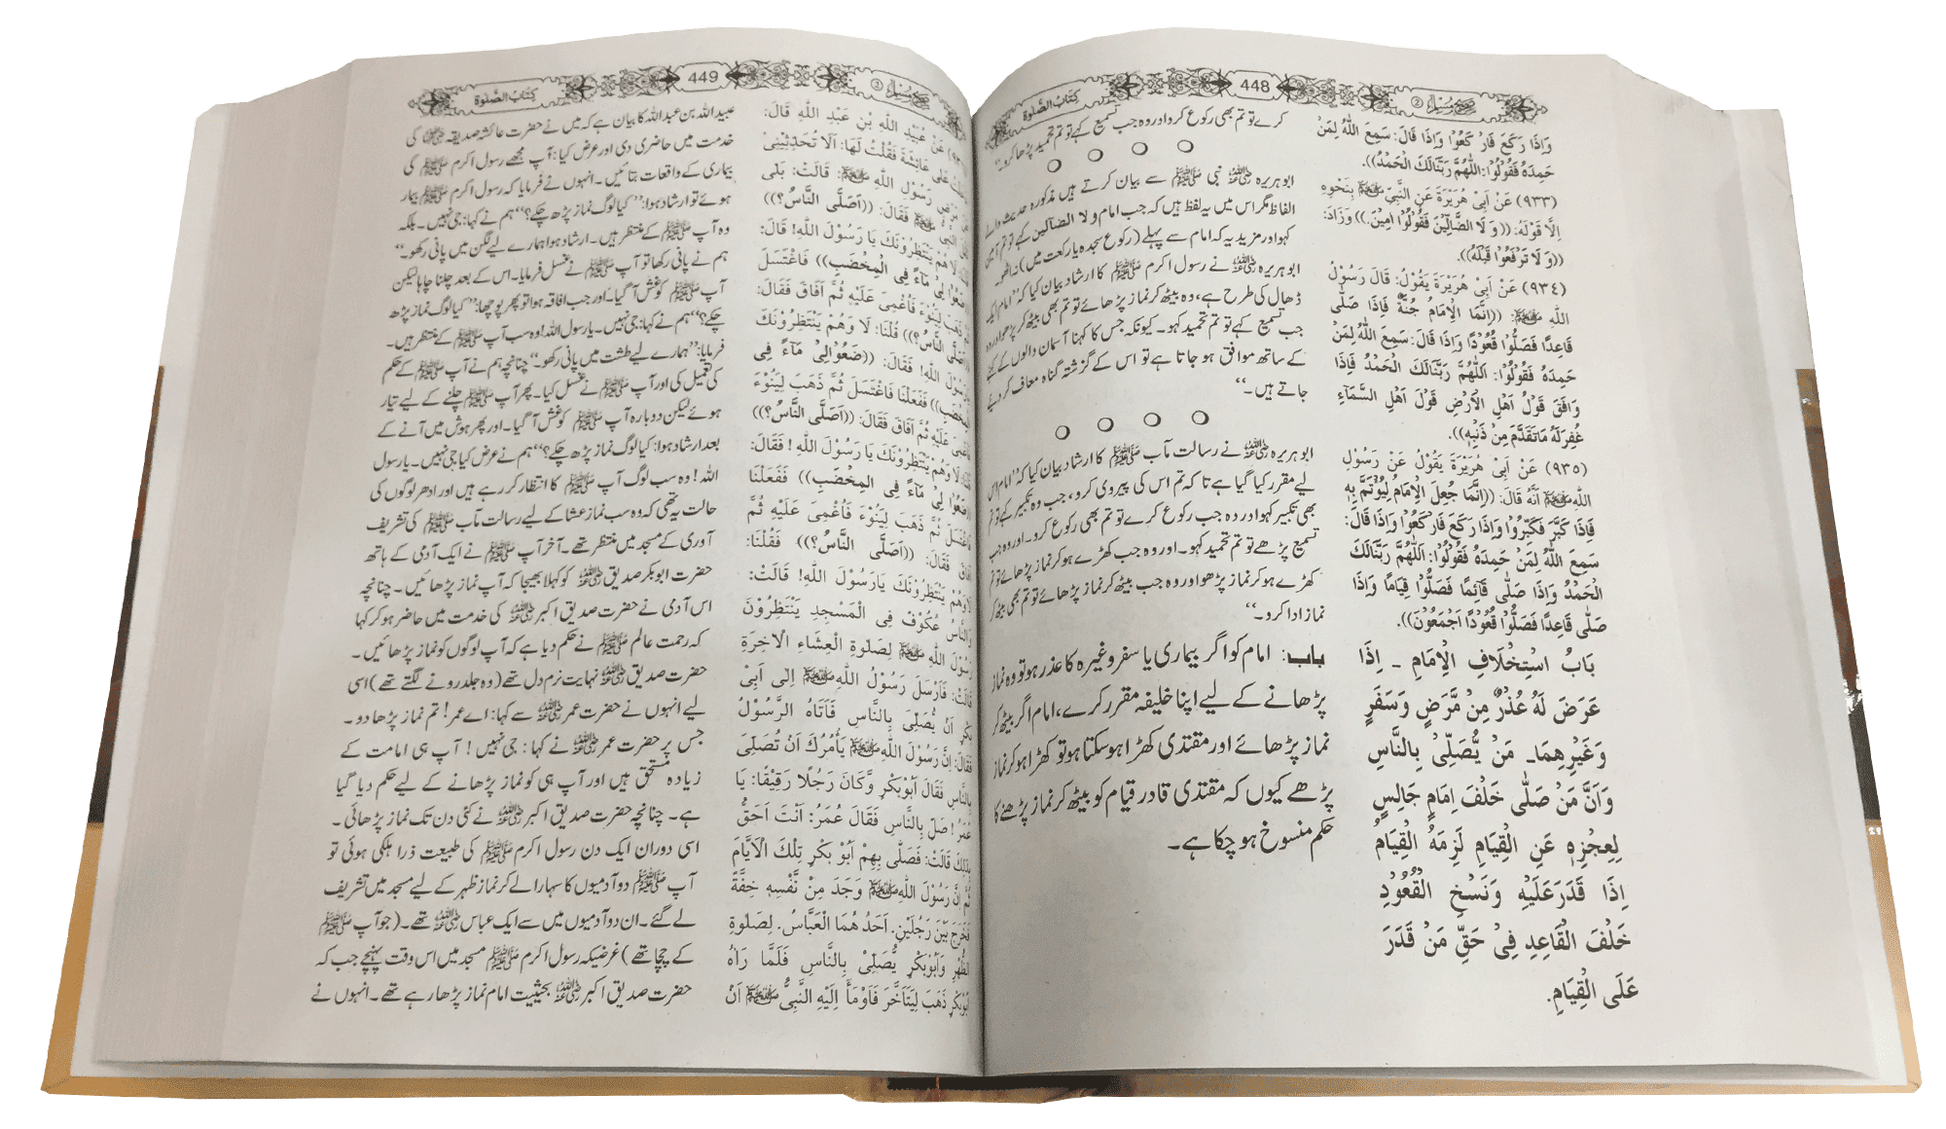 صحیح مسلم ②
448
كتاب الصلوة
وَاِذَا رَكَعَ فَارْكَعُوْا وَاِذَا قَالَ: سَمِعَ اللّٰهُ لِمَنْ
حَمِدَهٗ فَقُوْلُوْا: اَللّٰهُمَّ رَبَّنَا لَكَ الْحَمْدُ)).
(٩٣٣) عَنْ اَبِیْ هُرَيْرَةَ عَنِ النَّبِیِّ ﷺ بِنَحْوِهٖ
اِلَّا قَوْلَهٗ: ((وَ لَا الضَّآلِّيْنَ فَقُوْلُوْا اٰمِيْنَ.)) وَزَادَ:
((وَ لَا تَرْفَعُوْا قَبْلَهٗ)).
(٩٣٤) عَنْ اَبِیْ هُرَيْرَةَ يَقُوْلُ: قَالَ رَسُوْلُ
اللّٰهِ ﷺ: ((اِنَّمَا الْاِمَامُ جُنَّةٌ فَاِذَا صَلّٰى
قَاعِدًا فَصَلُّوْا قُعُوْدًا وَاِذَا قَالَ: سَمِعَ اللّٰهُ لِمَنْ
حَمِدَهٗ فَقُوْلُوْا: اَللّٰهُمَّ رَبَّنَا لَكَ الْحَمْدُ فَاِذَا
وَافَقَ قَوْلُ اَهْلِ الْاَرْضِ قَوْلَ اَهْلِ السَّمَآءِ
غُفِرَ لَهٗ مَا تَقَدَّمَ مِنْ ذَنْبِهٖ)).
(٩٣٥) عَنْ اَبِیْ هُرَيْرَةَ يَقُوْلُ عَنْ رَسُوْلِ
اللّٰهِ ﷺ اَنَّهٗ قَالَ: ((اِنَّمَا جُعِلَ الْاِمَامُ لِيُؤْتَمَّ بِهٖ
فَاِذَا كَبَّرَ فَكَبِّرُوْا وَاِذَا رَكَعَ فَارْكَعُوْا وَاِذَا قَالَ:
سَمِعَ اللّٰهُ لِمَنْ حَمِدَهٗ فَقُوْلُوْا: اَللّٰهُمَّ رَبَّنَا لَكَ
الْحَمْدُ وَاِذَا صَلّٰى قَآئِمًا فَصَلُّوْا قِيَامًا وَاِذَا
صَلّٰى قَاعِدًا فَصَلُّوْا قُعُوْدًا اَجْمَعُوْنَ)).
بَابُ اسْتِخْلَافِ الْاِمَامِ ۔ اِذَا
عَرَضَ لَهٗ عُذْرٌ مِنْ مَّرَضٍ وَسَفَرٍ
وَغَيْرِهِمَا۔ مَنْ يُّصَلِّیْ بِالنَّاسِ
وَاَنَّ مَنْ صَلّٰى خَلْفَ اِمَامٍ جَالِسٍ
لِعِجْزِهٖ عَنِ الْقِيَامِ لَزِمَهُ الْقِيَامُ
اِذَا قَدَرَ عَلَيْهِ وَنَسْخِ الْقُعُوْدِ
خَلْفَ الْقَاعِدِ فِیْ حَقِّ مَنْ قَدَرَ
عَلَى الْقِيَامِ.
کرے تو تم بھی رکوع کرو اور وہ جب تسمیع کہے تو تم تحمید پڑھا کرو۔“
ابوہریرہ رضی اللہ عنہ نبی ﷺ سے بیان کرتے ہیں مذکورہ حدیث والے
الفاظ مگر اس میں یہ لفظ ہیں کہ جب امام ولا الضالین کہے تو تم آمین
کہو اور مزید یہ کہ امام سے پہلے (رکوع سجدہ یا رکعت میں) نہ اٹھو۔
ابوہریرہ رضی اللہ عنہ نے رسول اکرم ﷺ کا ارشاد بیان کیا کہ ”امام ایک
ڈھال کی طرح ہے، وہ بیٹھ کر نماز پڑھائے تو تم بھی بیٹھ کر پڑھو اور وہ
جب تسمیع کہے تو تم تحمید کہو۔ کیونکہ جس کا کہنا آسمان والوں کے کہنے
کے ساتھ موافق ہو جاتا ہے تو اس کے گزشتہ گناہ معاف کر دیے
جاتے ہیں۔“
ابوہریرہ رضی اللہ عنہ نے رسالت مآب ﷺ کا ارشاد بیان کیا کہ ”امام اس
لیے مقرر کیا گیا ہے تا کہ تم اس کی پیروی کرو، جب وہ تکبیر کہے تو تم
بھی تکبیر کہو اور وہ جب رکوع کرے تو تم بھی رکوع کرو۔ اور وہ جب
تسمیع پڑھے تو تم تحمید کہو۔ اور وہ جب کھڑے ہو کر نماز پڑھائے تو تم
کھڑے ہو کر نماز پڑھو اور وہ جب بیٹھ کر نماز پڑھائے تو تم بھی بیٹھ کر
نماز ادا کرو۔“
باب: امام کو اگر بیماری یا سفر وغیرہ کا عذر ہو تو وہ نماز
پڑھانے کے لیے اپنا خلیفہ مقرر کرے، امام اگر بیٹھ کر
نماز پڑھائے اور مقتدی کھڑا ہو سکتا ہو تو کھڑا ہو کر نماز
پڑھے کیوں کہ مقتدی قادر قیام کو بیٹھ کر نماز پڑھنے کا
حکم منسوخ ہو چکا ہے۔
صحیح مسلم ②
449
كتاب الصلوة
عَنْ عُبَيْدِ اللّٰهِ بْنِ عَبْدِ اللّٰهِ قَالَ:
عَلٰى عَائِشَةَ فَقُلْتُ لَهَا: اَلَا تُحَدِّثِيْنِیْ
مَرَضِ رَسُوْلِ اللّٰهِ ﷺ: قَالَتْ: بَلٰى
النَّبِیُّ ﷺ فَقَالَ: ((اَصَلَّى النَّاسُ؟)) قُلْنَا:
لَا وَهُمْ يَنْتَظِرُوْنَكَ يَا رَسُوْلَ اللّٰهِ! قَالَ:
ضَعُوْا لِیْ مَآءً فِی الْمِخْضَبِ)) فَاغْتَسَلَ
ذَهَبَ لِيَنُوْءَ فَاُغْمِیَ عَلَيْهِ ثُمَّ اَفَاقَ فَقَالَ:
اَصَلَّى النَّاسُ؟)) قُلْنَا: لَا وَهُمْ يَنْتَظِرُوْنَكَ
رَسُوْلَ اللّٰهِ! فَقَالَ: ((ضَعُوْا لِیْ مَآءً فِی
الْمِخْضَبِ)) فَفَعَلْنَا فَاغْتَسَلَ ثُمَّ ذَهَبَ لِيَنُوْءَ
عَلَيْهِ ثُمَّ اَفَاقَ فَقَالَ: ((اَصَلَّى النَّاسُ؟))
لَا وَهُمْ يَنْتَظِرُوْنَكَ يَا رَسُوْلَ اللّٰهِ! فَقَالَ:
ضَعُوْا لِیْ مَآءً فِی الْمِخْضَبِ)) فَفَعَلْنَا
ثُمَّ ذَهَبَ لِيَنُوْءَ فَاُغْمِیَ عَلَيْهِ ثُمَّ
فَقَالَ: ((اَصَلَّى النَّاسُ؟)) فَقُلْنَا:
لَا وَهُمْ يَنْتَظِرُوْنَكَ يَارَسُوْلَ اللّٰهِ! قَالَتْ:
وَالنَّاسُ عُكُوْفٌ فِی الْمَسْجِدِ يَنْتَظِرُوْنَ
رَسُوْلَ اللّٰهِ ﷺ لِصَلٰوةِ الْعِشَاءِ الْاٰخِرَةِ
قَالَتْ: فَاَرْسَلَ رَسُوْلُ اللّٰهِ ﷺ اِلٰى اَبِیْ
بَكْرٍ اَنْ يُّصَلِّیَ بِالنَّاسِ فَاَتَاهُ الرَّسُوْلُ
فَقَالَ: اِنَّ رَسُوْلَ اللّٰهِ ﷺ يَأْمُرُكَ اَنْ تُصَلِّیَ
بِالنَّاسِ فَقَالَ اَبُوْبَكْرٍ وَّكَانَ رَجُلًا رَقِيْقًا: يَا
عُمَرُ! صَلِّ بِالنَّاسِ فَقَالَ عُمَرُ: اَنْتَ اَحَقُّ
بِذٰلِكَ قَالَتْ: فَصَلّٰى بِهِمْ اَبُوْ بَكْرٍ تِلْكَ الْاَيَّامَ
ثُمَّ اِنَّ رَسُوْلَ اللّٰهِ ﷺ وَجَدَ مِنْ نَّفْسِهٖ خِفَّةً
فَخَرَجَ بَيْنَ رَجُلَيْنِ. اَحَدُ هُمَا الْعَبَّاسُ. لِصَلٰوةِ
الظُّهْرِ وَاَبُوْبَكْرٍ يُّصَلِّیْ بِالنَّاسِ فَلَمَّا رَاٰهُ
اَبُوْبَكْرٍ ذَهَبَ لِيَتَاَخَّرَ فَاَوْمَأَ اِلَيْهِ النَّبِیُّ ﷺ اَنْ
عبید اللہ بن عبد اللہ کا بیان ہے کہ میں نے حضرت عائشہ صدیقہ رضی اللہ عنہا کی
خدمت میں حاضری دی اور عرض کیا: آپ مجھے رسول اکرم ﷺ کی
بیماری کے واقعات بتائیں۔ انہوں نے فرمایا کہ رسول اکرم ﷺ بیمار
ہوئے تو ارشاد ہوا: ”کیا لوگ نماز پڑھ چکے؟“ ہم نے کہا: جی نہیں۔ بلکہ
وہ آپ ﷺ کے منتظر ہیں۔ ارشاد ہوا ہمارے لیے لگن میں پانی رکھو۔“
ہم نے پانی رکھا تو آپ ﷺ نے غسل فرمایا۔ اس کے بعد چلنا چاہا لیکن
آپ ﷺ کو غش آ گیا۔ اور جب افاقہ ہوا تو پھر پوچھا: ”کیا لوگ نماز پڑھ
چکے؟“ ہم نے کہا: جی نہیں۔ یا رسول اللہ! وہ سب آپ ﷺ کے منتظر ہیں۔
فرمایا: ”ہمارے لیے طشت میں پانی رکھو“ چنانچہ ہم نے آپ ﷺ کے حکم
کی تعمیل کی اور آپ ﷺ نے غسل کیا۔ پھر آپ ﷺ چلنے کے لیے تیار
ہوئے لیکن دوبارہ آپ ﷺ کو غش آ گیا۔ اور پھر ہوش میں آنے کے
بعد ارشاد ہوا: کیا لوگ نماز پڑھ چکے؟“ ہم نے عرض کیا جی نہیں۔ یا رسول
اللہ! وہ سب لوگ آپ ﷺ کا انتظار کر رہے ہیں اور ادھر لوگوں کی
حالت یہ تھی کہ وہ سب نماز عشا کے لیے رسالت مآب ﷺ کی تشریف
آوری کے مسجد میں منتظر تھے۔ آخر آپ ﷺ نے ایک آدمی کے ہاتھ
حضرت ابوبکر صدیق رضی اللہ عنہ کو کہلا بھیجا کہ آپ نماز پڑھائیں۔ چنانچہ
اس آدمی نے حضرت صدیق اکبر رضی اللہ عنہ کی خدمت میں حاضر ہو کر کہا
کہ رحمت عالم ﷺ نے حکم دیا ہے کہ آپ لوگوں کو نماز پڑھائیں۔
حضرت صدیق رضی اللہ عنہ نہایت نرم دل تھے (وہ جلد رونے لگتے تھے) اسی
لیے انہوں نے حضرت عمر رضی اللہ عنہ سے کہا: اے عمر! تم نماز پڑھا دو۔
جس پر حضرت عمر رضی اللہ عنہ نے کہا: جی نہیں! آپ ہی امامت کے
زیادہ مستحق ہیں اور آپ ہی کو نماز پڑھانے کے لیے حکم دیا گیا
ہے۔ چنانچہ حضرت صدیق اکبر رضی اللہ عنہ نے کئی دن تک نماز پڑھائی۔
اسی دوران ایک دن رسول اکرم ﷺ کی طبیعت ذرا ہلکی ہوئی تو
آپ ﷺ دو آدمیوں کا سہارا لے کر نماز ظہر کے لیے مسجد میں تشریف
لے گئے۔ ان دو آدمیوں میں سے ایک عباس رضی اللہ عنہ تھے۔ (جو آپ ﷺ
کے چچا تھے) غرضیکہ رسول اکرم ﷺ مسجد میں اس وقت پہنچے جب کہ
حضرت صدیق اکبر رضی اللہ عنہ بحیثیت امام نماز پڑھا رہے تھے۔ انہوں نے